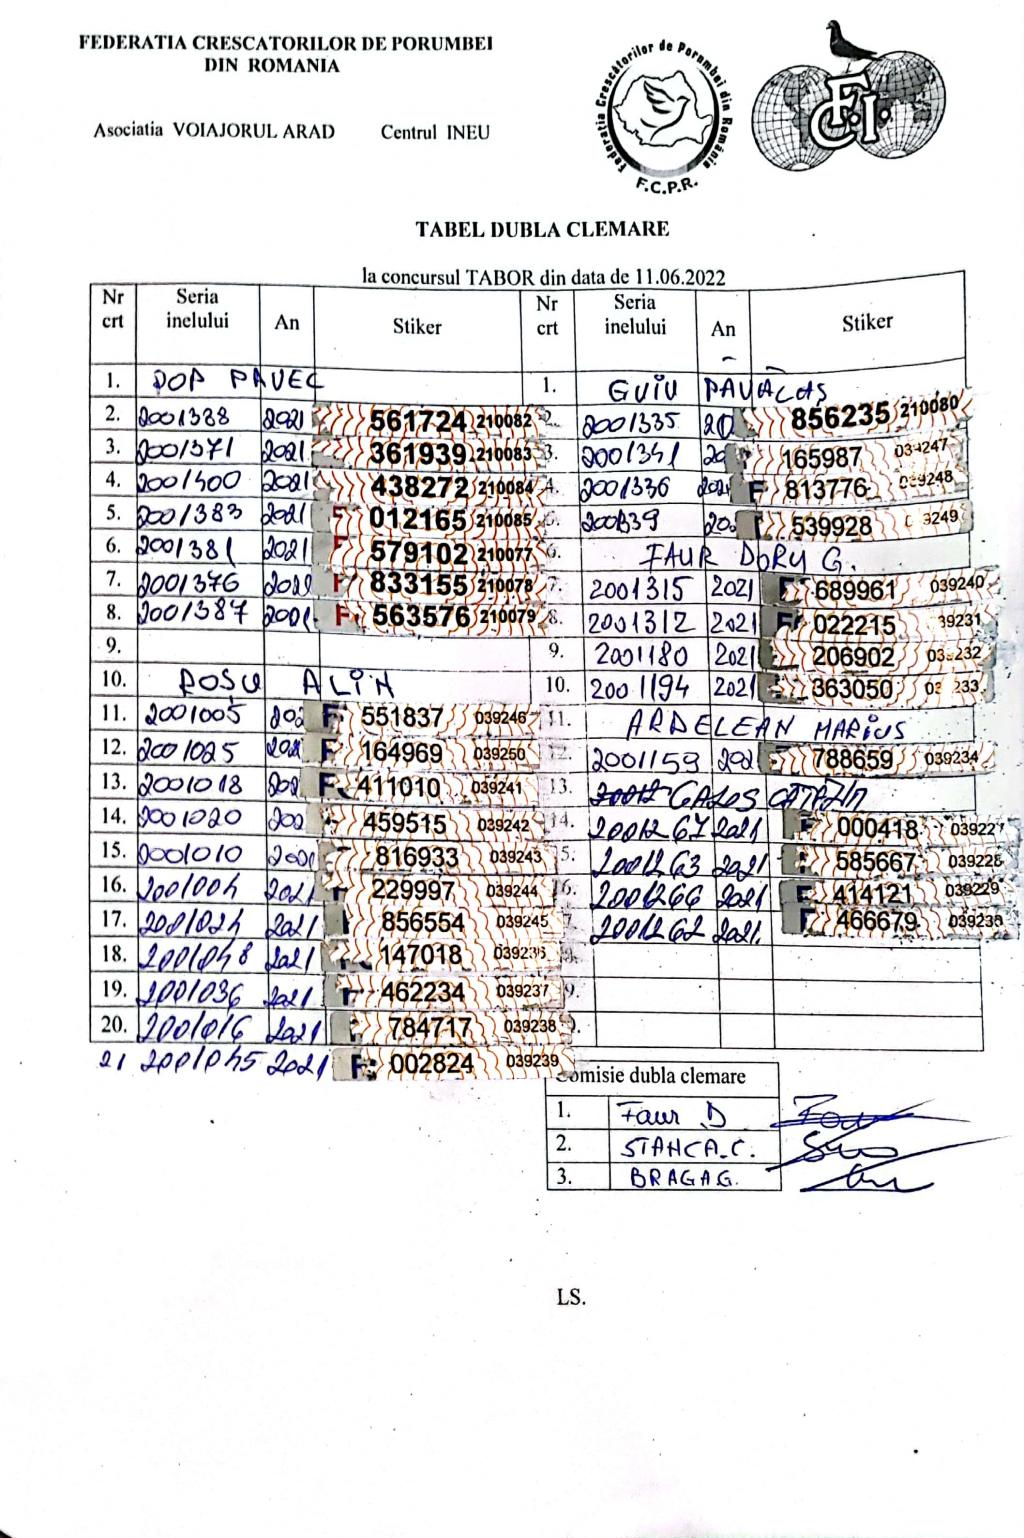 FEDERATIA CRESCATORILOR DE PORUMBEI
DIN ROMANIA
Asociatia VOIAJORUL ARAD Centrul INEU
Federatia Crescătorilor de Porumbei din România
F.C.P.R.
F.C.I.
TABEL DUBLA CLEMARE
la concursul TABOR din data de 11.06.2022
Nr crt Seria inelului An Stiker Nr crt Seria inelului An Stiker
1. POP PAVEL 1. GUIU PAVALAS
2. 2001388 2021 561724 210082 2. 2001335 20 856235 210080
3. 2001371 2021 361939 210083 3. 2001341 20 165987 039247
4. 2001400 2021 438272 210084 4. 2001336 202 F 813776 039248
5. 2001383 2021 F 012165 210085 539928 3249
6. 2001381 2021 F 579102 210077 6. FAUR DORU G.
7. 2001376 F 833155 210078 7. 2001315 2021 F 689961 039240
8. 2001387 F 563576 210079 8. 2001312 2021 F 022215 39231
9. 9. 2001180 2021 206902 232
10. ROSU ALIN 10. 2001194 2021 363050 233
11. 2001005 202 F 551837 039246 11. ARDELEAN MARIUS
12. 2001025 F 164969 039250 12. 2001159 202 788659 039234
13. 2001018 202 F 411010 039241 13. CATALIN
14. 2001020 202 459515 039242 14. 2001267 2021 F 000418 03922
15. 2001010 816933 039243 5. 2001263 2021 585667 039228
16. 2001004 2021 229997 039244 16. 2001266 2021 F 414121 039229
17. 2001024 2021 856554 039245 2001262 2021. F 466679
18. 2001048 2021 147018 039236
19. 2001036 2021 462234 039237 9.
20. 2001016 2021 784717 039238
21 2001045 2021 F 002824 039239
Comisie dubla clemare
1. Faur D
2. STANCA.C.
3. BRAGA G.
LS.